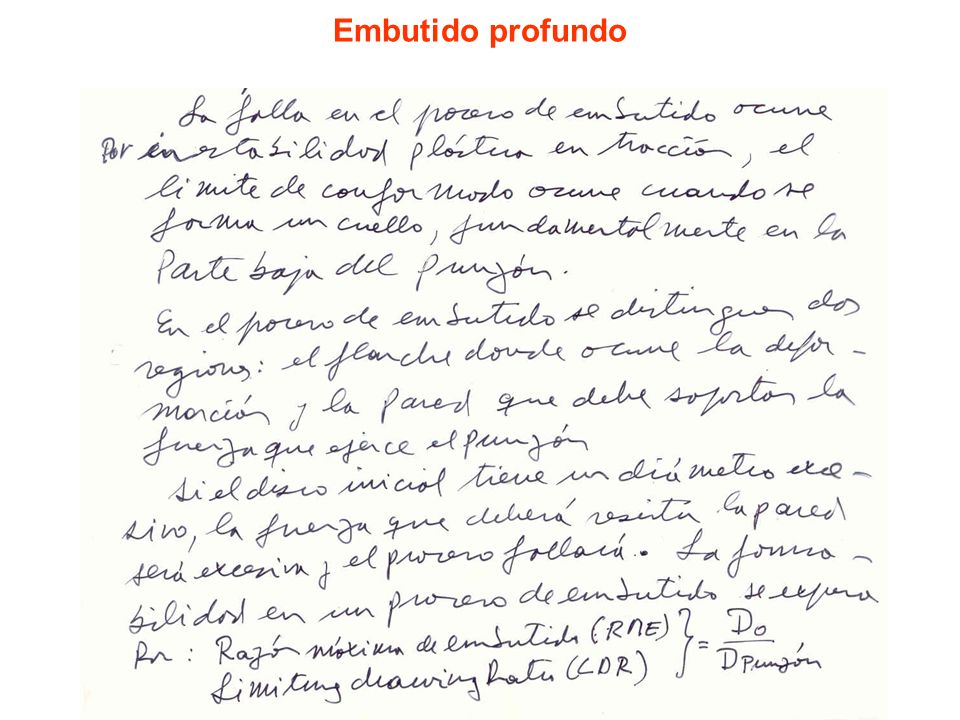 Embutido profundo
La falla en el proceso de embutido ocurre
Por inestabilidad plástica en tracción, el
limite de conformado ocurre cuando se
forma un cuello, fundamentalmente en la
Parte baja del punzón.
En el proceso de embutido se distinguen dos
regiones: el flanche donde ocurre la defor-
mación y la pared que debe soportar la
fuerza que ejerce el punzón
Si el disco inicial tiene un diámetro exce-
sivo, la fuerza que deberá resistir la pared
será excesiva y el proceso fallará. La forma-
bilidad en un proceso de embutido se expresa
Por: Razón máxima de embutido (RME) } = Do / DPunzón
Limiting drawing Ratio (LDR)